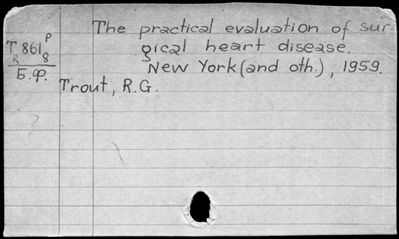 The practical evaluation of sur
gical heart disease.
New York (and oth.), 1959.
Trout, R.G.
P
T 861
R 8
Б.ф.